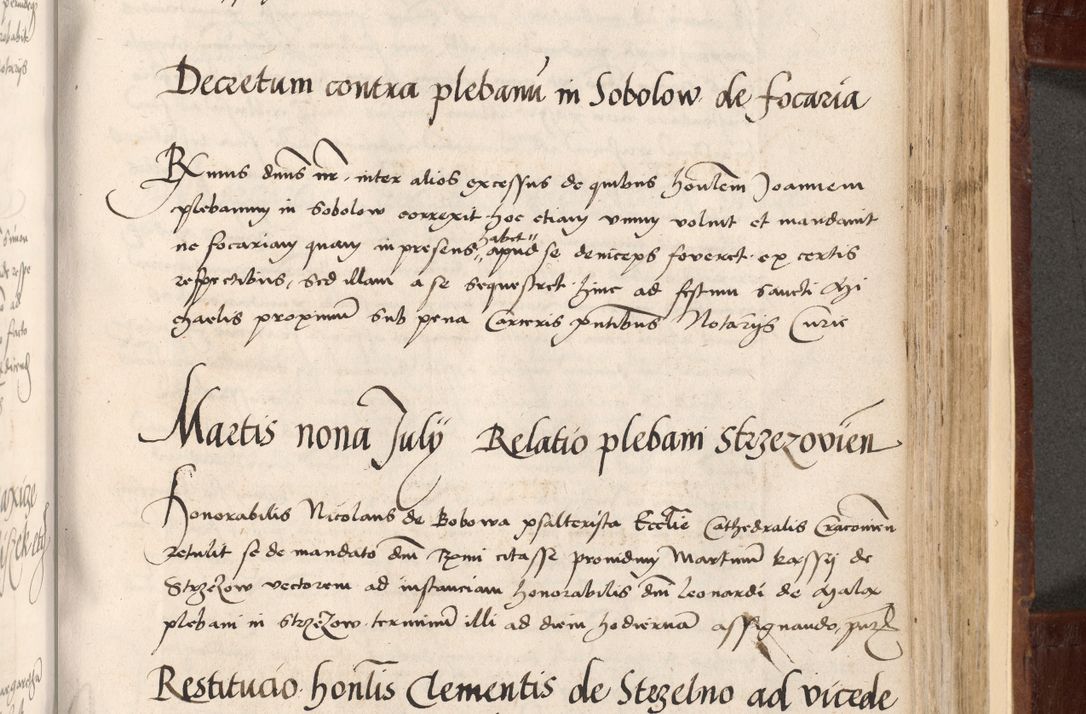 Decretum contra plebanū in Sobolow de focaria
Rx̄mus dn̄us nr̄ inter alios excessus de quibus hon̄lem Joannem
plebanum in Sobolow correxit hoc etiam unum voluit et mandavit
ne focariam quam inpresens habet apud se deniceps foveret ex certis
respectibus, sed illam a se sequestret hinc ad festum sancti Mi
chaelis proximū sub pena Carceris pn̄tibus Notarijs Curie
Martis nona Julij Relatio plebani Strzezovien
Honorabilis Nicolaus de Bobowa psalterista Eccl̄ie Cathedralis Cracovien
retulit se de mandato dn̄i R̄mi citasse providum Martinū Kassij de
Strzezow vectorem ad instanciam honorabilis dn̄i Leonardi de
plebani in Strzezow terminū illi ad diem hodiernā assignando,
Restitucio hon̄lis Clementis de Strzelno ad vicede